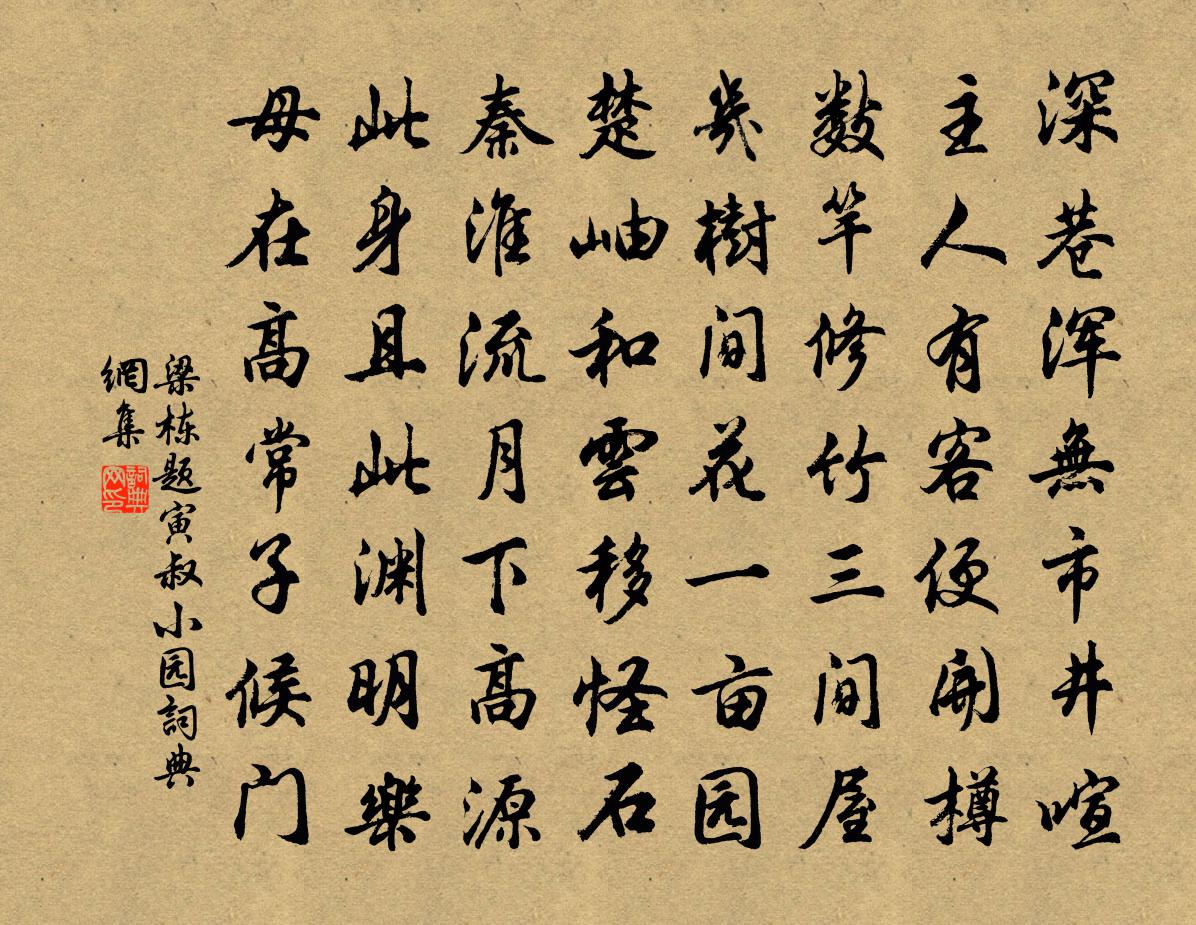 深巷浑無市井喧
主人有客便開樽
数竿修竹三间屋
幾樹间花一亩园
楚岫和雲移怪石
秦淮流月下高源
此身且此渊明樂
母在高常子候门
梁栋题寅叔小园詞典
網集
詞典网印